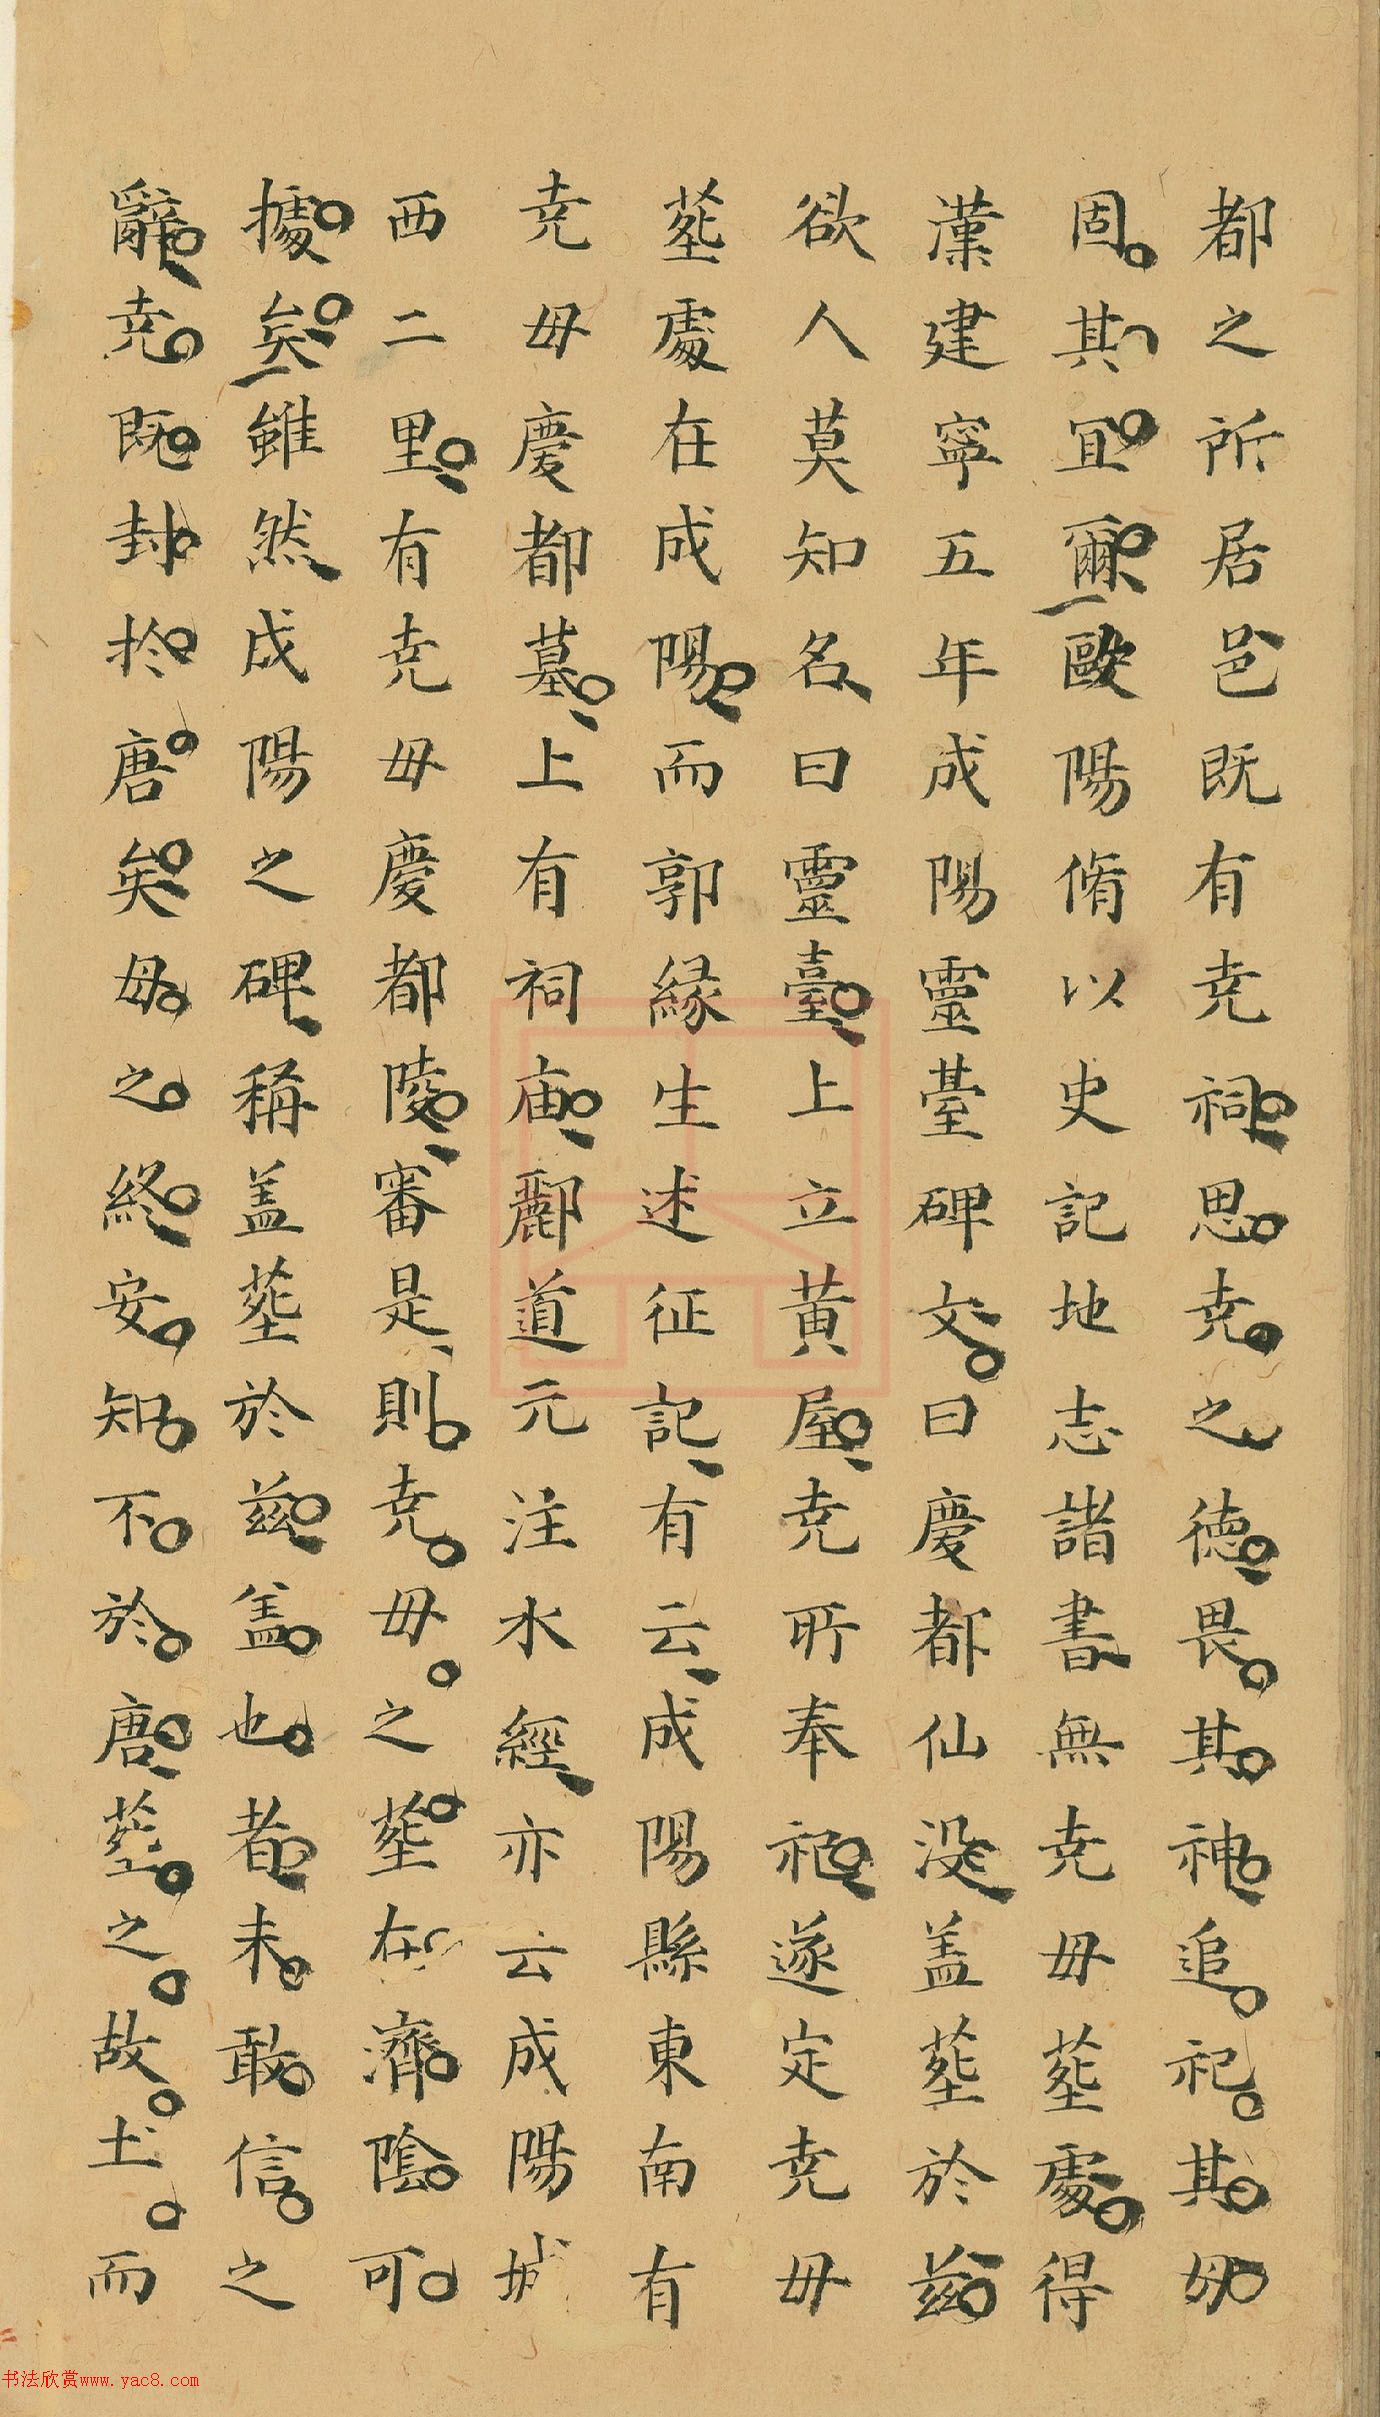 都之所居邑既有尭祠思尭之徳畏其神追祀其母
固其宜爾歐陽脩以史記地志諸書無尭毋塟處得
漢建寧五年成陽靈臺碑文曰慶都仙没盖塟於兹
欲人莫知名曰靈臺上立黄屋尭所奉祀遂定尭毋
塟處在成陽而郭緣生述征記有云成陽縣東南有
尭毋慶都墓上有祠庙酈道元注水經亦云成陽城
西二里有尭毋慶都陵審是則尭毋之塟在濟陰可
據矣雖然成陽之碑稱盖塟於兹盖也者未敢信之
辭尭既封扵唐矣母之終安知不於唐塟之故土而
书法欣赏www.yac8.com